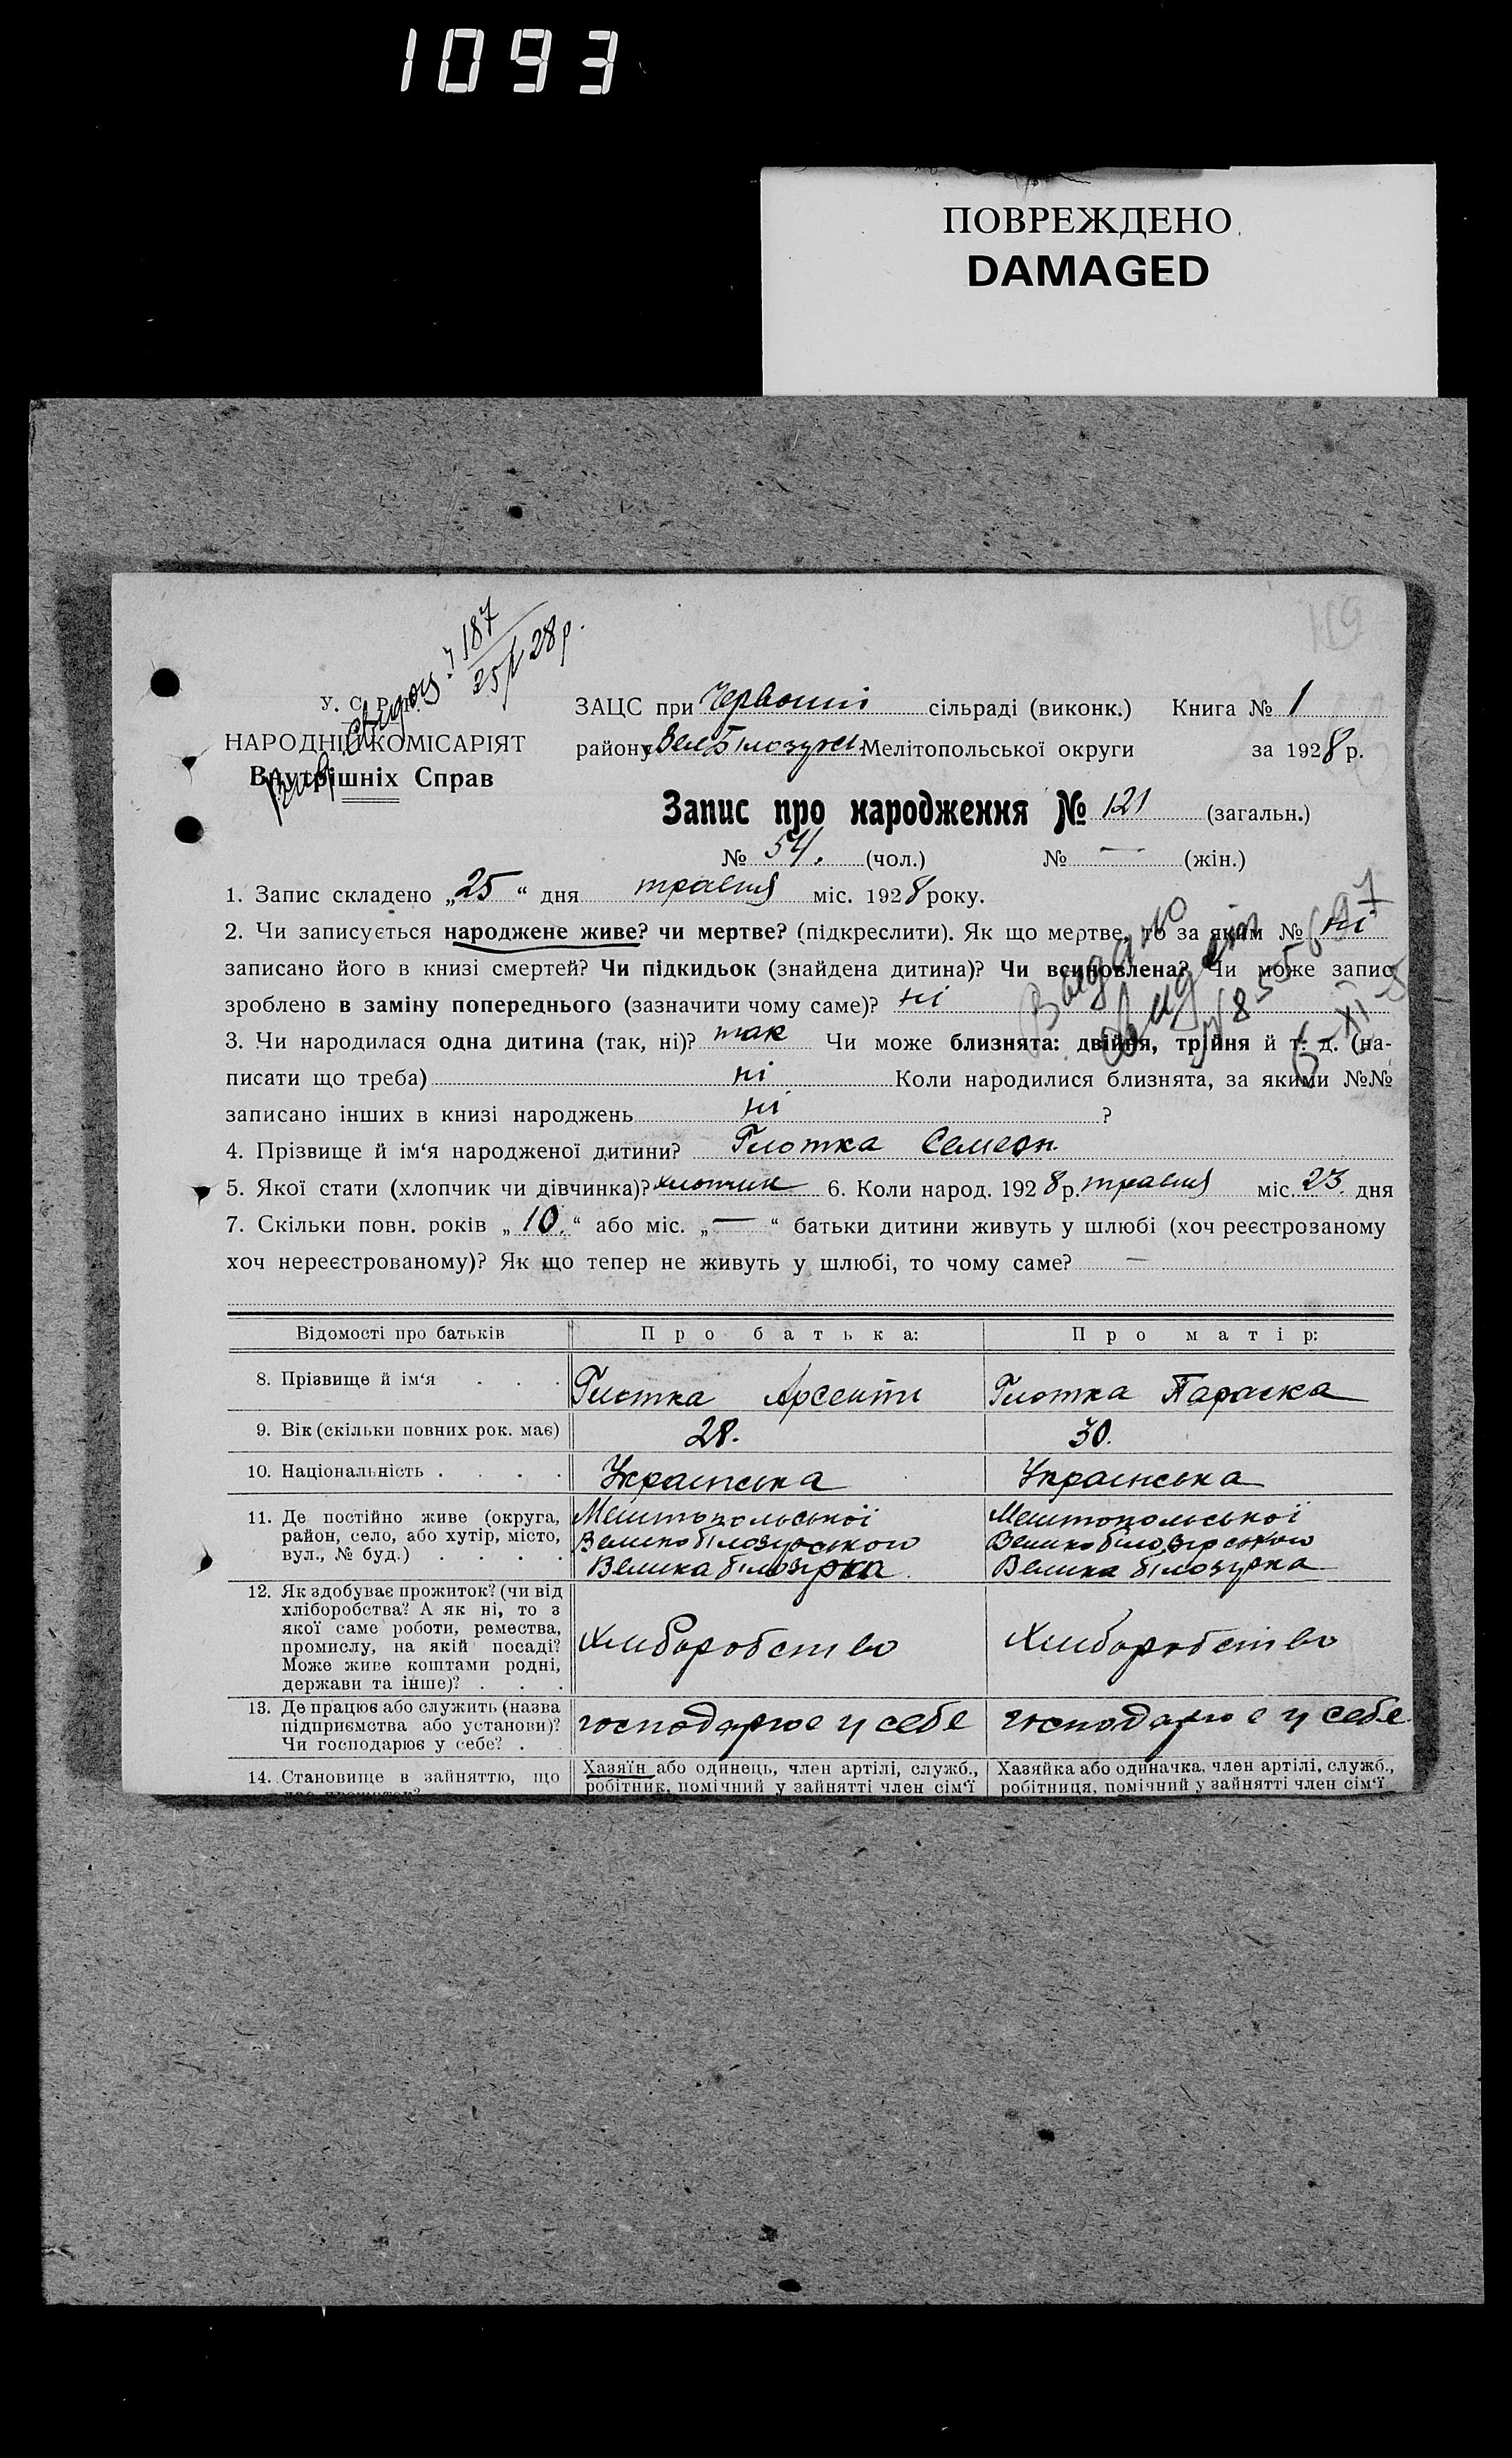 1093
ПОВРЕЖДЕНО
DAMAGED
187
25/V 28р.
У. С. Р. Р.
НАРОДНІЙ КОМІСАРІЯТ
Внутрішніх Справ
ЗАЦС при Червоній сільраді (виконк.) Книга № 1
району Мелітопольської округи за 1928 р.
Запис про народження № 121 (загальн.)
№ 54. (чол.) № — (жін.)
1. Запис складено „25“ дня травня міс. 1928 року.
2. Чи записується народжене живе? чи мертве? (підкреслити). Як що мертве, то за яким № ні
записано його в книзі смертей? Чи підкидьок (знайдена дитина)? Чи всиновлена? Чи може запис
зроблено в заміну попереднього (зазначити чому саме)? ні
Видано
3. Чи народилася одна дитина (так, ні)? так Чи може близнята: двійня, трійня й т. д. (на-
писати що треба) ні Коли народилися близнята, за якими №№
записано інших в книзі народжень ні ?
4. Прізвище й ім‘я народженої дитини? Глотка Семеон.
5. Якої стати (хлопчик чи дівчинка)? хлопчик 6. Коли народ. 1928 р. травня міс. 23. дня
7. Скільки повн. років „10.“ або міс. „—“ батьки дитини живуть у шлюбі (хоч реєстрованому
хоч нереєстрованому)? Як що тепер не живуть у шлюбі, то чому саме? —
Відомості про батьків Про батька: Про матір:
8. Прізвище й ім‘я . . . Глотка Арсентій Глотка Параска
9. Вік (скільки повних рок. має) 28. 30.
10. Національність . . . . Українська Українська
11. Де постійно живе (округа, Мелітопольської Мелітопольської
район, село, або хутір, місто, Великобілозірського Великобілозірського
вул., № буд.) . . . . Велика білозірка Велика білозірка
12. Як здобуває прожиток? (чи від
хліборобства? А як ні, то з
якої саме роботи, ремества,
промислу, на якій посаді? Хліборобство Хліборобство
Може живе коштами родні,
держави та інше)? . . .
13. Де працює або служить (назва
підприємства або установи)? господарює у себе господарює у себе
Чи господарює у себе? .
14. Становище в зайняттю, що Хазяїн або одинець, член артілі, служб., Хазяйка або одиначка, член артілі, служб.,
робітник, помічний у зайнятті член сім‘ї робітниця, помічний у зайнятті член сім‘ї